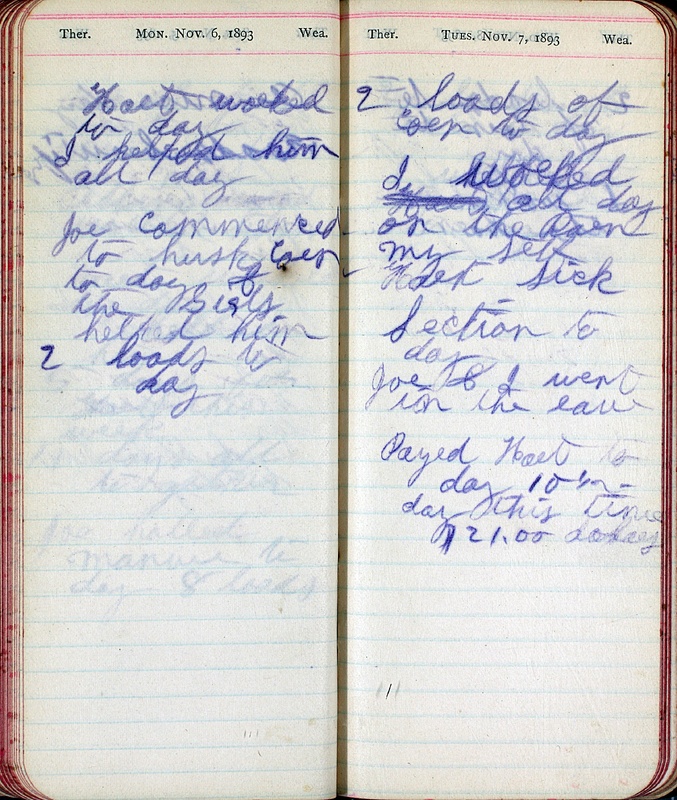 Ther. Mon. Nov. 6, 1893 Wea.
Hoet worked
to day
I helped him
all day
Joe commenced
to husk Coen
to day &
the Bigs
helped him
2 loads to
day
week
manure to
day 8 loads
Ther. Tues. Nov. 7, 1893 Wea.
2 loads of
Coen to day
I worked
all day
on the Baen
my self
Hoet Sick
Section to
day
Joe & I went
in the eave
Payed Hoet to
day 10 1/2
day this time
$21.00